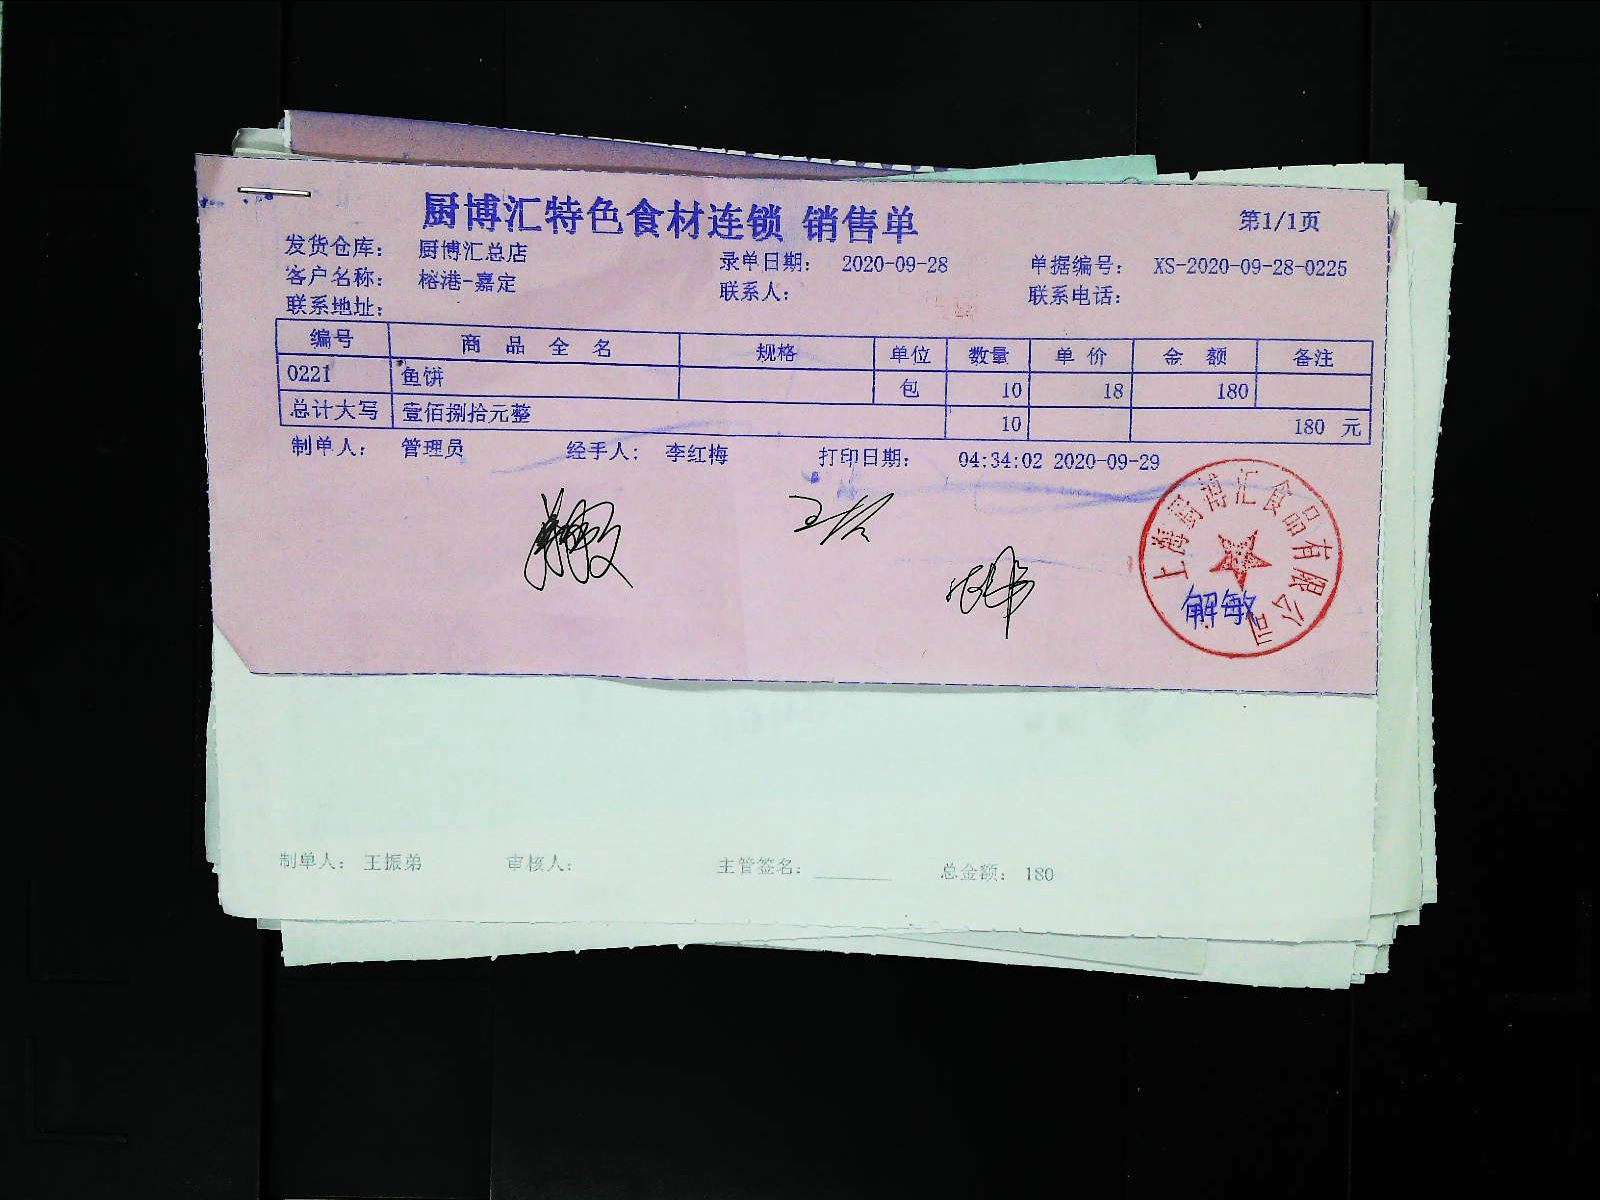 厨博汇特色食材连锁 销售单
第1/1页
发货仓库： 厨博汇总店 录单日期： 2020-09-28 单据编号： XS-2020-09-28-0225
客户名称： 榕港-嘉定 联系人： 联系电话：
联系地址：
编号 商品全名 规格 单位 数量 单价 金额 备注
0221 鱼饼 包 10 18 180
总计大写 壹佰捌拾元整 10 180 元
制单人： 管理员 经手人： 李红梅 打印日期： 04:34:02 2020-09-29
上海厨博汇食品有限公司
解敏
制单人： 王振弟 审核人： 主管签名： 总金额： 180